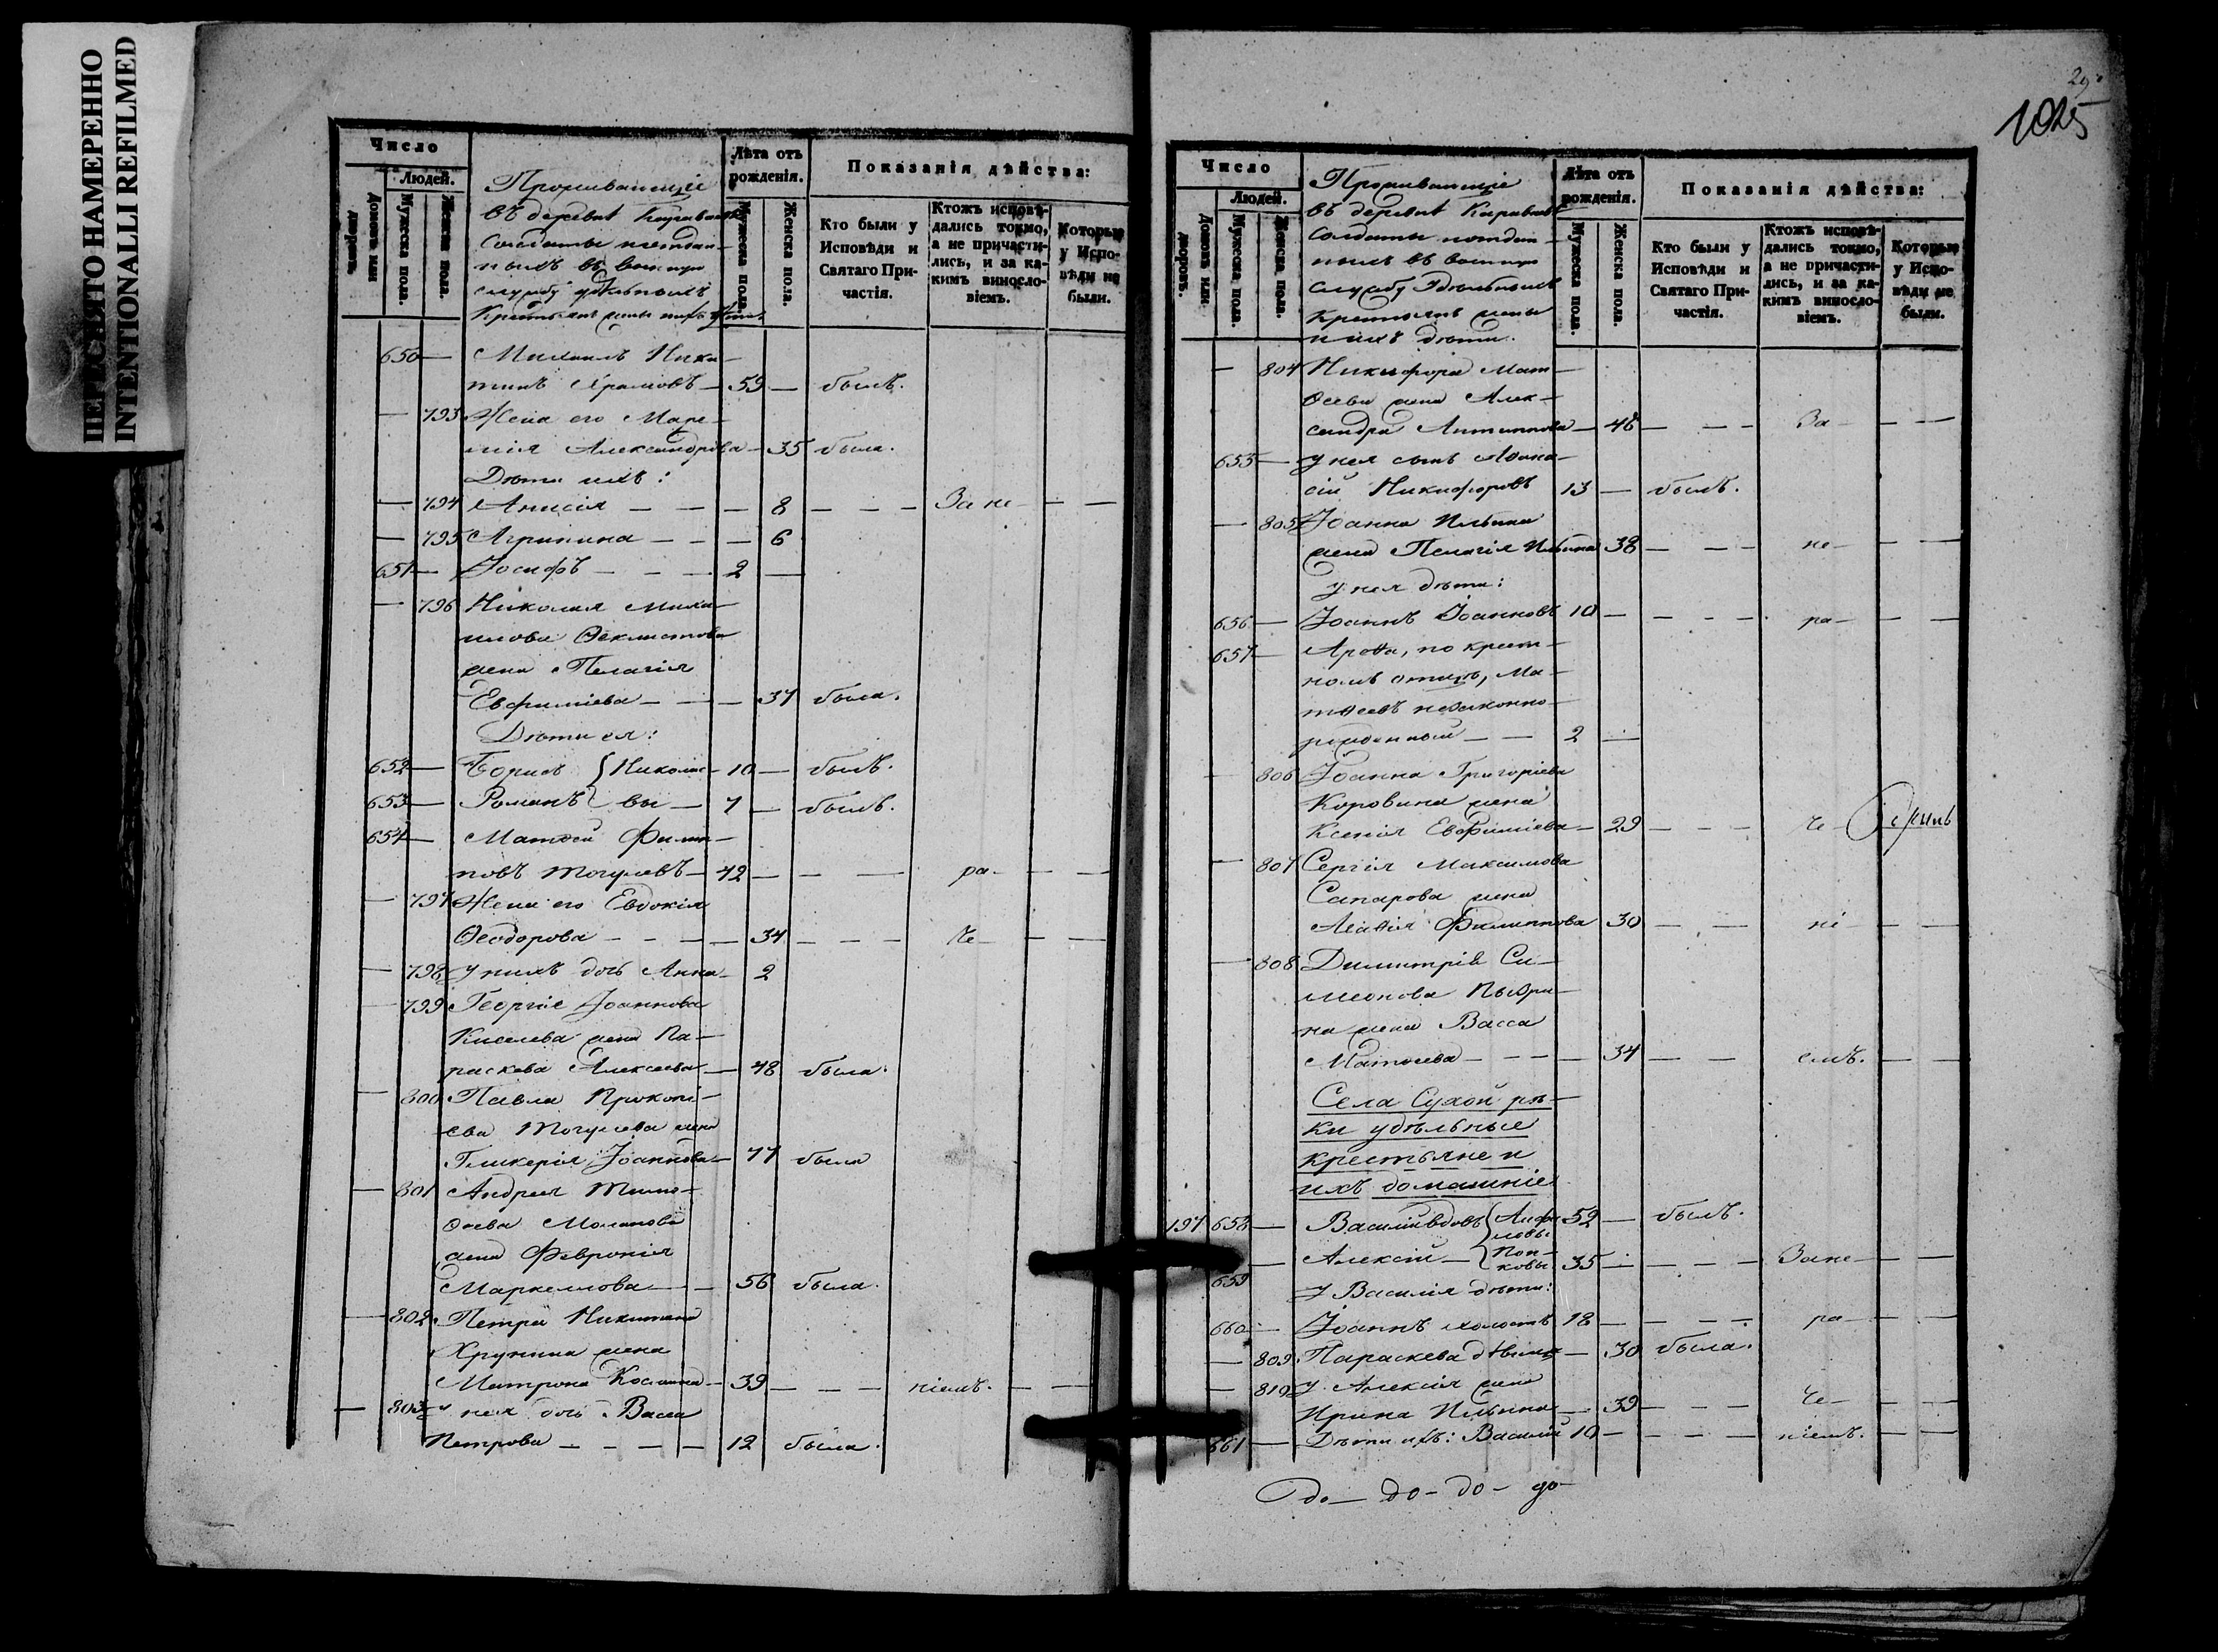 ПЕРЕСНЯТО НАМЕРЕННО
INTENTIONALLI REFILMED
Число
Людей.
Домовъ или дворовъ.
Мужеска пола.
Женска пола.
Проживающіе
въ деревнѣ
солдаты
ныхъ въ военную
службу удѣльныхъ
крестьянъ жены ихъ
Лѣта отъ рожденія.
Мужеска пола.
Женска пола.
Показанія дѣйства:
Кто были у Исповѣди и Святаго Причастія.
Ктожъ исповѣдались токмо, а не причастились, и за какимъ винословіемъ.
Которые у Исповѣди не были.
650 — Михаилъ Ники-
тинъ — 59 — былъ.
— 793 Жена его Марѳ-
Александрова — 35 была.
Дѣти ихъ:
— 794 Анисія — — — 8 — — — За не — —
— 795 Агрипина — — — 6
651 — Іосифъ — — — 2 —
— 796 Николая Михаи-
лова Ѳеклистова
жена Пелагія
Евфиміева — — — 37 была.
Дѣти ея:
652 — Борисъ { Никола- 10 — былъ.
653 — Романъ { вы — 7 — былъ.
654 — Матѳей Филип-
повъ Могулевъ — 42 — — — ра — — —
— 797 Жена его Евдокія
Ѳеодорова — — — — 34 — — — че — — —
— 798 У нихъ дочь Анна — 2
— 799 Георгія Іоаннова
Киселева жена Па-
раскева Алексеева — 48 была.
— 800 Павла Прокопі-
ева Могулева жена
Гликерія Іоаннова — 77 была
— 801 Андрея Тимо-
ѳеева Моланова
жена Февронія
Маркеллова — — 56 была.
— 802 Петра Никитина
Хрунина жена
Матрона Космина — 39 — — — ніемъ. — —
— 803 У нея дочь Васса
Петрова — — — — 12 была.
29
1025
Число
Людей.
Домовъ или дворовъ.
Мужеска пола.
Женска пола.
Проживающіе
въ деревнѣ
солдаты
ныхъ въ военную
службу Удѣльныхъ
крестьянъ жены
ихъ дѣти.
Лѣта отъ рожденія.
Мужеска пола.
Женска пола.
Показанія дѣйства:
Кто были у Исповѣди и Святаго Причастія.
Ктожъ исповѣдались токмо, а не причастились, и за какимъ винословіемъ.
Которые у Исповѣди не были.
— 804 Никифора Мат-
ѳеева жена Алек-
сандра Антипова — 48 — — — За — — —
655 — У нея сынъ Аѳана-
сій Никифоровъ 13 — былъ.
— 805 Іоанна Ильина
жена Пелагія Ильина 38 — — — не — — —
У нея дѣти:
656 — Іоаннъ Іоанновъ 10 — — — — ра — — —
657 — Ароѳа, по крест-
номъ отцѣ, Ма-
тѳеевъ незаконно-
рожденный — — 2 —
— 806 Іоанна Григоріева
Коровина жена
Ксенія Евфиміева — 29 — — — че —
— 807 Сергія Максимова
Сапарова жена
Филиппова 30 — — не — —
— 808 Димитрія Си-
меонова
на жена Васса
Матѳеева — — — — 34 — — емъ. — —
Села Сухой рѣ-
ки удѣльные
крестьяне и
ихъ домашніе
197 658 — Василій вдовъ { Анфи- 52 — былъ.
ловы
659 — Алексій — { Поп- 35 — — — — За не — —
ковы
У Василія дѣти:
660 — Іоаннъ холостъ 18 — — — — ра — — —
— 809 Параскева дѣвица — 30 была.
— 810 У Алексія жена
Ирина Ильина — 39 — — — че — — —
661 — Дѣти ихъ: Василій 10 — — — — ніемъ. — —
до — до — до — до